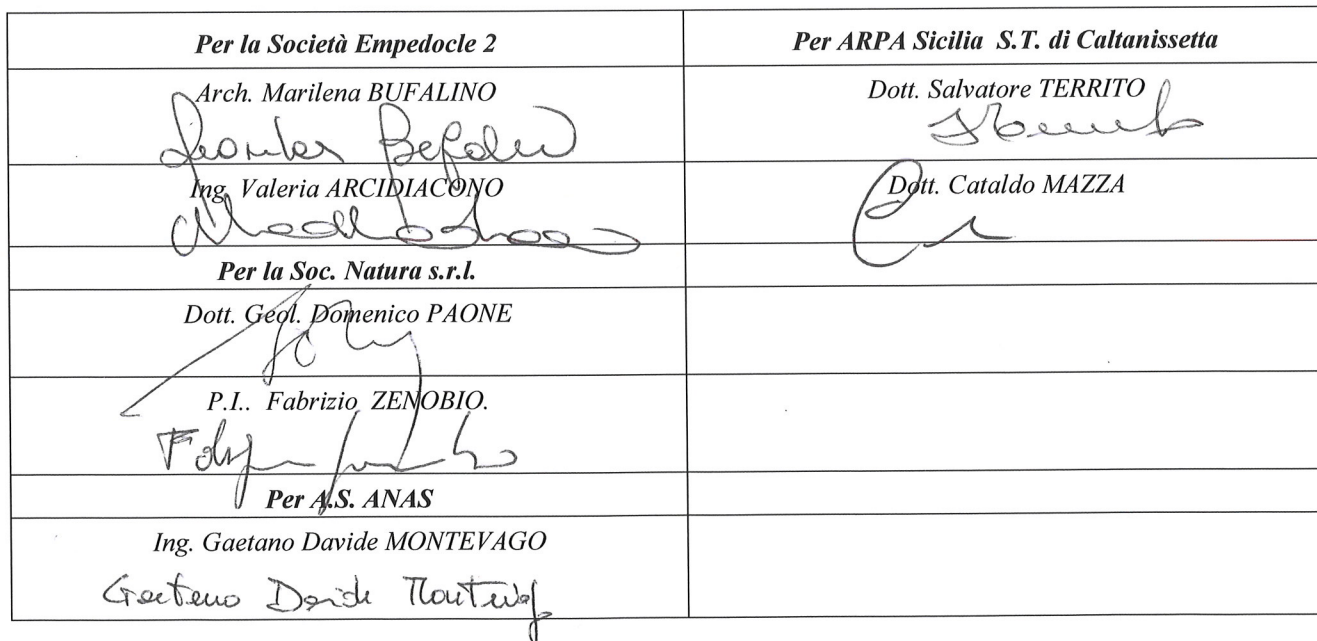 Per la Società Empedocle 2
Per ARPA Sicilia S.T. di Caltanissetta
Arch. Marilena BUFALINO
Dott. Salvatore TERRITO
Ing. Valeria ARCIDIACONO
Dott. Cataldo MAZZA
Per la Soc. Natura s.r.l.
Dott. Geol. Domenico PAONE
P.I.. Fabrizio ZENOBIO.
Per A.S. ANAS
Ing. Gaetano Davide MONTEVAGO
Gaetano Davide